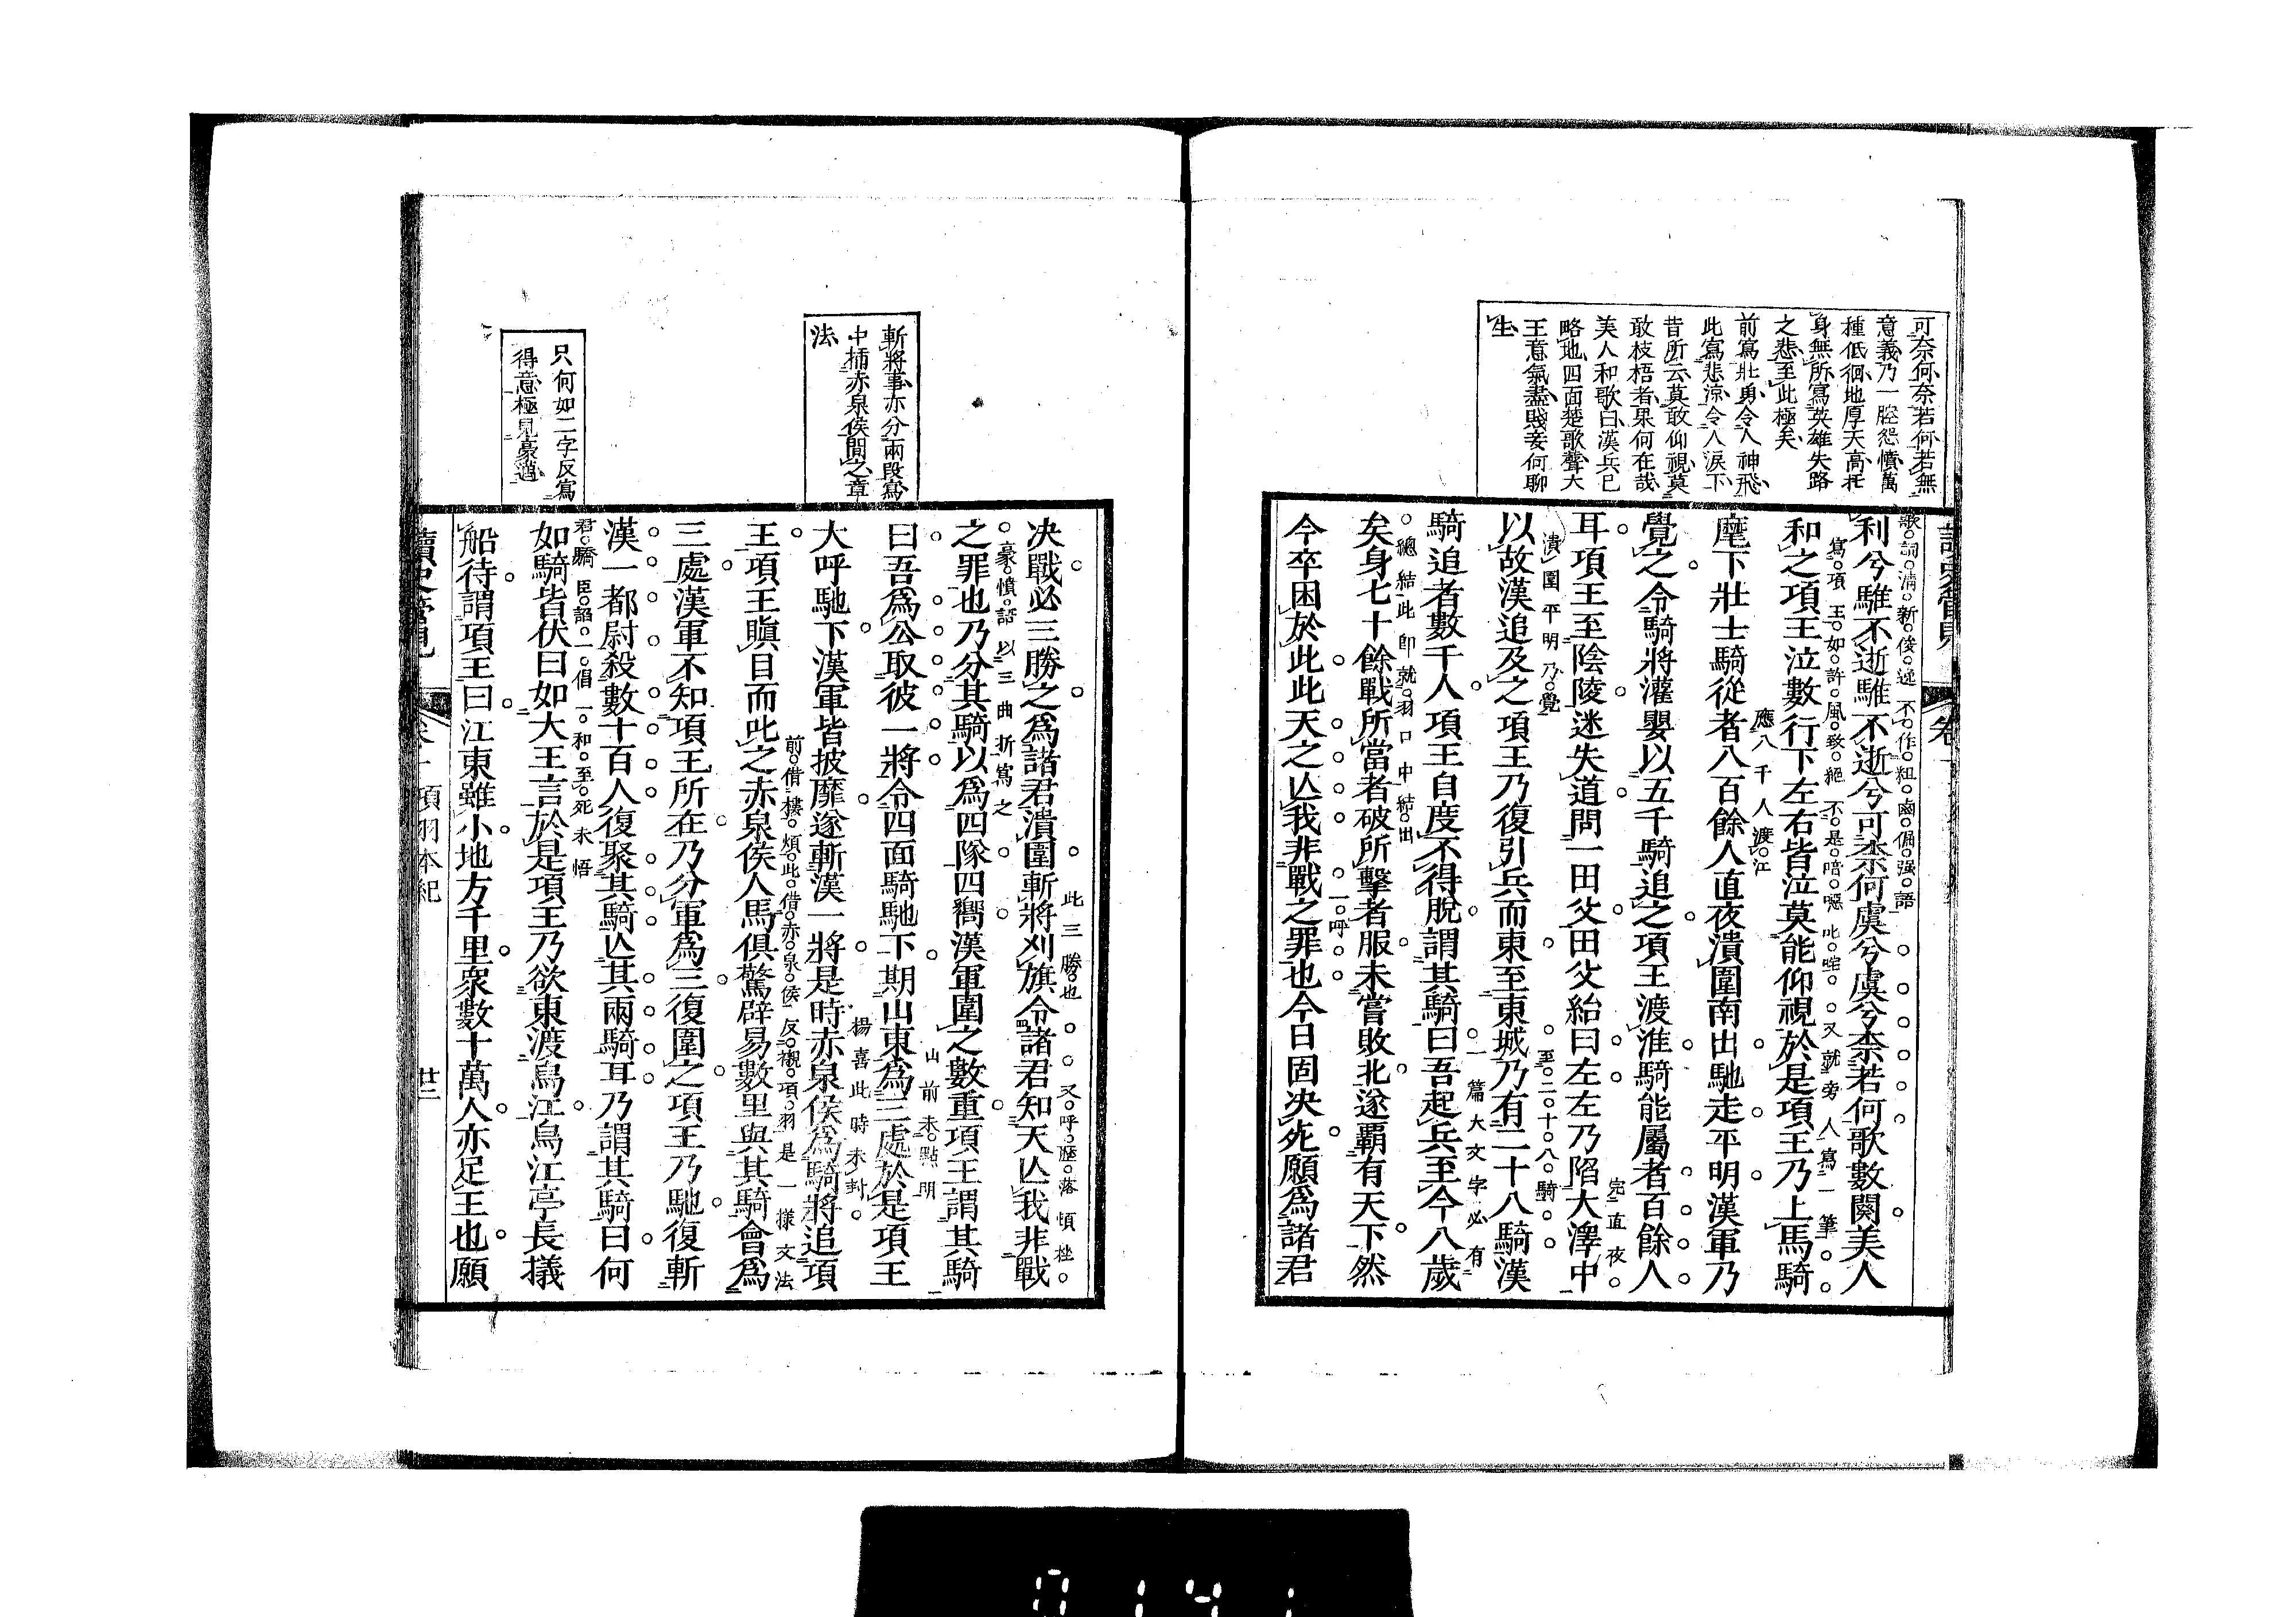 可奈何奈若何若無
意義乃一腔怨憤萬
種低徊地厚天高托
身無所寫英雄失路
之悲至此極矣
前寫壯勇令人神飛
此寫悲涼令人淚下
昔所云莫敢仰視莫
敢枝梧者果何在哉
美人和歌曰漢兵已
略地四面楚歌聲大
王意氣盡賤妾何聊
生
歌詞清新俊逸不作粗鹵倔强語
利兮騅不逝騅不逝兮可柰何虞兮虞兮柰若何歌數闋美人
寫項王如許風致絕不是喑噁叱咤又就旁人寫一筆
和之項王泣數行下左右皆泣莫能仰視於是項王乃上馬騎
麾下壯士騎從者八百餘人直夜潰圍南出馳走平明漢軍乃
應八千人渡江
覺之令騎將灌嬰以五千騎追之項王渡淮騎能屬者百餘人
耳項王至陰陵迷失道問一田父田父紿曰左左乃陷大澤中
完直夜
潰圍平明乃覺
以故漢追及之項王乃復引兵而東至東城乃有二十八騎漢
至二十八騎
騎追者數千人項王自度不得脫謂其騎曰吾起兵至今八歲
一篇大文字必有
總結此卽就羽口中結出
矣身七十餘戰所當者破所擊者服未嘗敗北遂霸有天下然
今卒困於此此天之亾我非戰之罪也今日固決死願爲諸君
一呼
讀史管見
卷一
斬將事亦分兩段寫
中插赤泉侯間之章
法
只何如二字反寫
得意極見豪邁
決戰必三勝之爲諸君潰圍斬將刈旗令諸君知天亾我非戰
此三勝也
又呼歷落頓挫
豪憤語以三曲折寫之
之罪也乃分其騎以爲四隊四嚮漢軍圍之數重項王謂其騎
曰吾爲公取彼一將令四面騎馳下期山東爲三處於是項王
山前未點明
大呼馳下漢軍皆披靡遂斬漢一將是時赤泉侯爲騎將追項
楊喜此時未封
前借樓煩此借赤泉侯反襯項羽是一樣文法
王項王瞋目而叱之赤泉侯人馬俱驚辟易數里與其騎會爲
三處漢軍不知項王所在乃分軍爲三復圍之項王乃馳復斬
漢一都尉殺數十百人復聚其騎亾其兩騎耳乃謂其騎曰何
君驕臣諂一倡一和至死未悟
如騎皆伏曰如大王言於是項王乃欲東渡烏江烏江亭長檥
船待謂項王曰江東雖小地方千里衆數十萬人亦足王也願
讀史管見 卷一 項羽本紀 廿二
0141